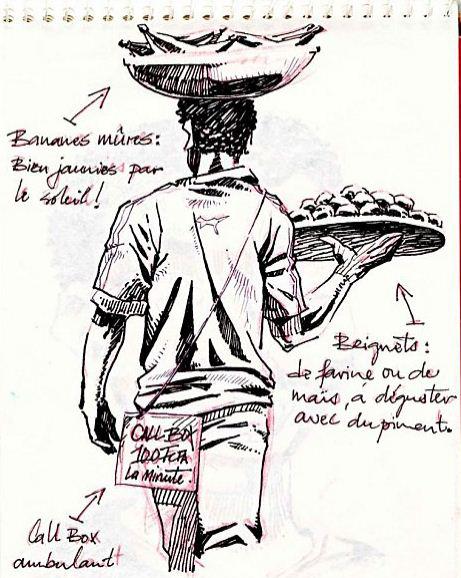 Bananes mûres:
Bien jaunies par
le soleil!
Beignets:
de farine ou de
maïs, à déguster
avec du piment.
CALL-BOX
100 FCFA
La Minute
Call Box
ambulant